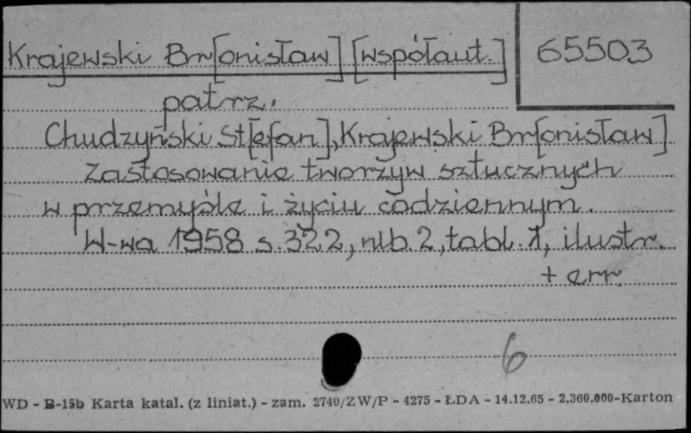 Krajewski Br[onisław] [współaut.] 65503
patrz.
Chudzyński St[efan], Krajewski Br[onisław]
Zastosowanie tworzyw sztucznych
w przemyśle i życiu codziennym.
W-wa 1958 s. 322, nlb. 2, tabl. 1, ilustr.
+ err.
6
WD - B-15b Karta katal. (z liniat.) - zam. 2740/ZW/P - 4275 - ŁDA - 14.12.65 - 2.360.000-Karton